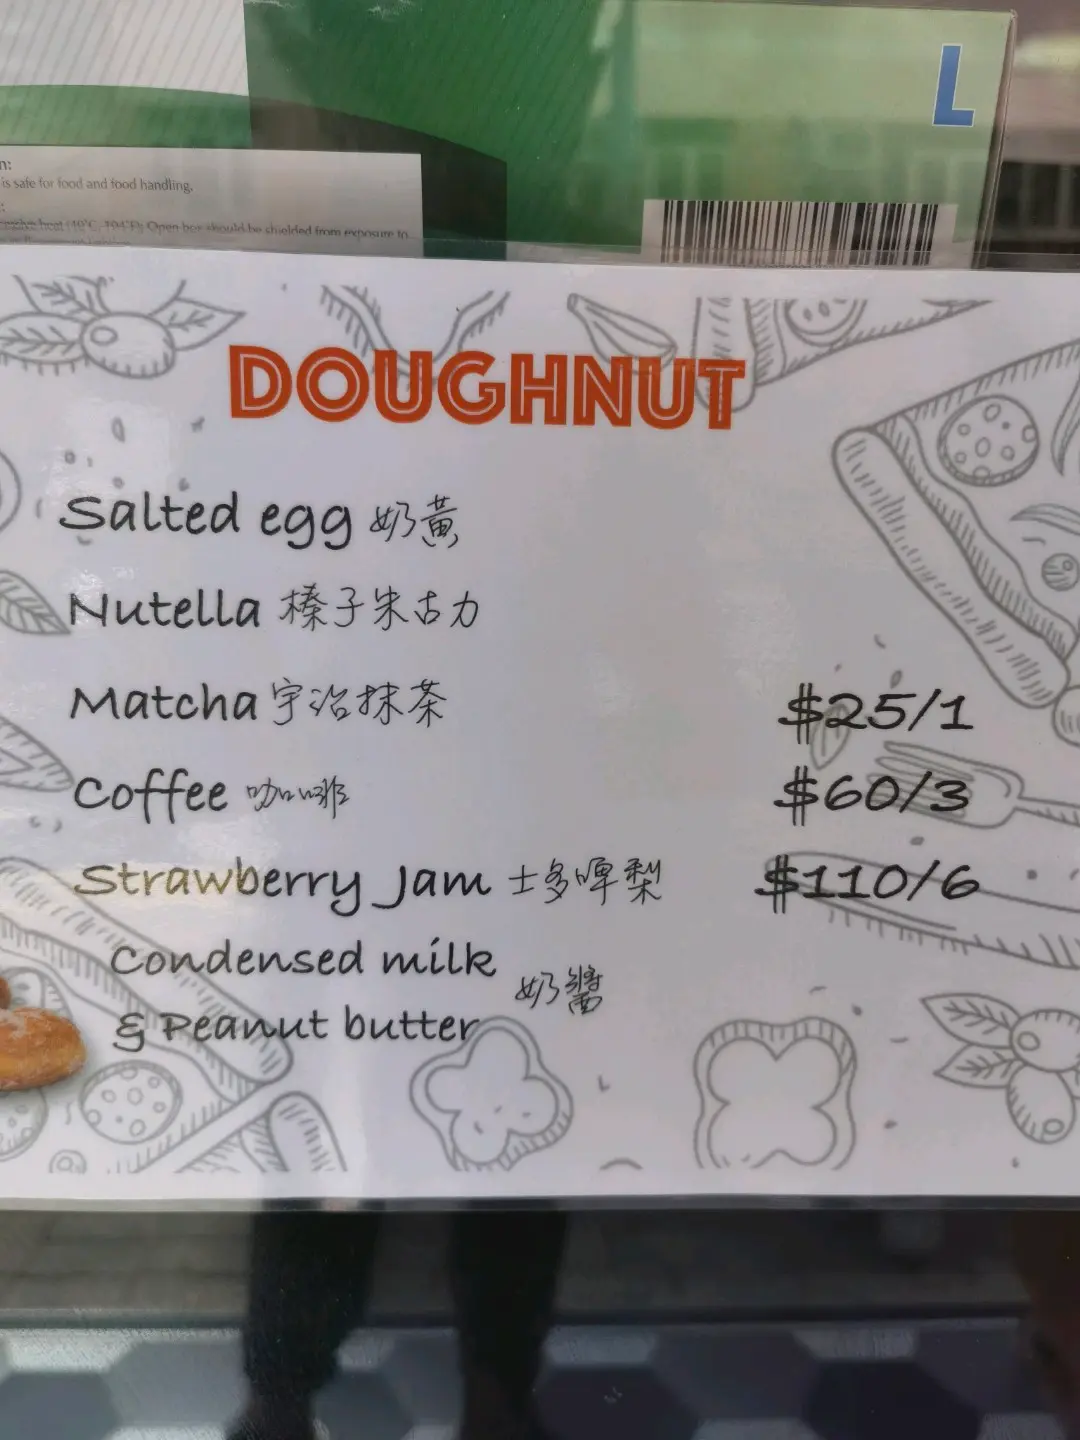 L
n:
is safe for food and food handling.
:
Open box should be shielded from exposure to
DOUGHNUT
Salted egg 奶黃
Nutella 榛子朱古力
Matcha 宇治抹茶
$25/1
Coffee 咖啡
$60/3
Strawberry Jam 士多啤梨
$110/6
Condensed milk
& Peanut butter
奶醬